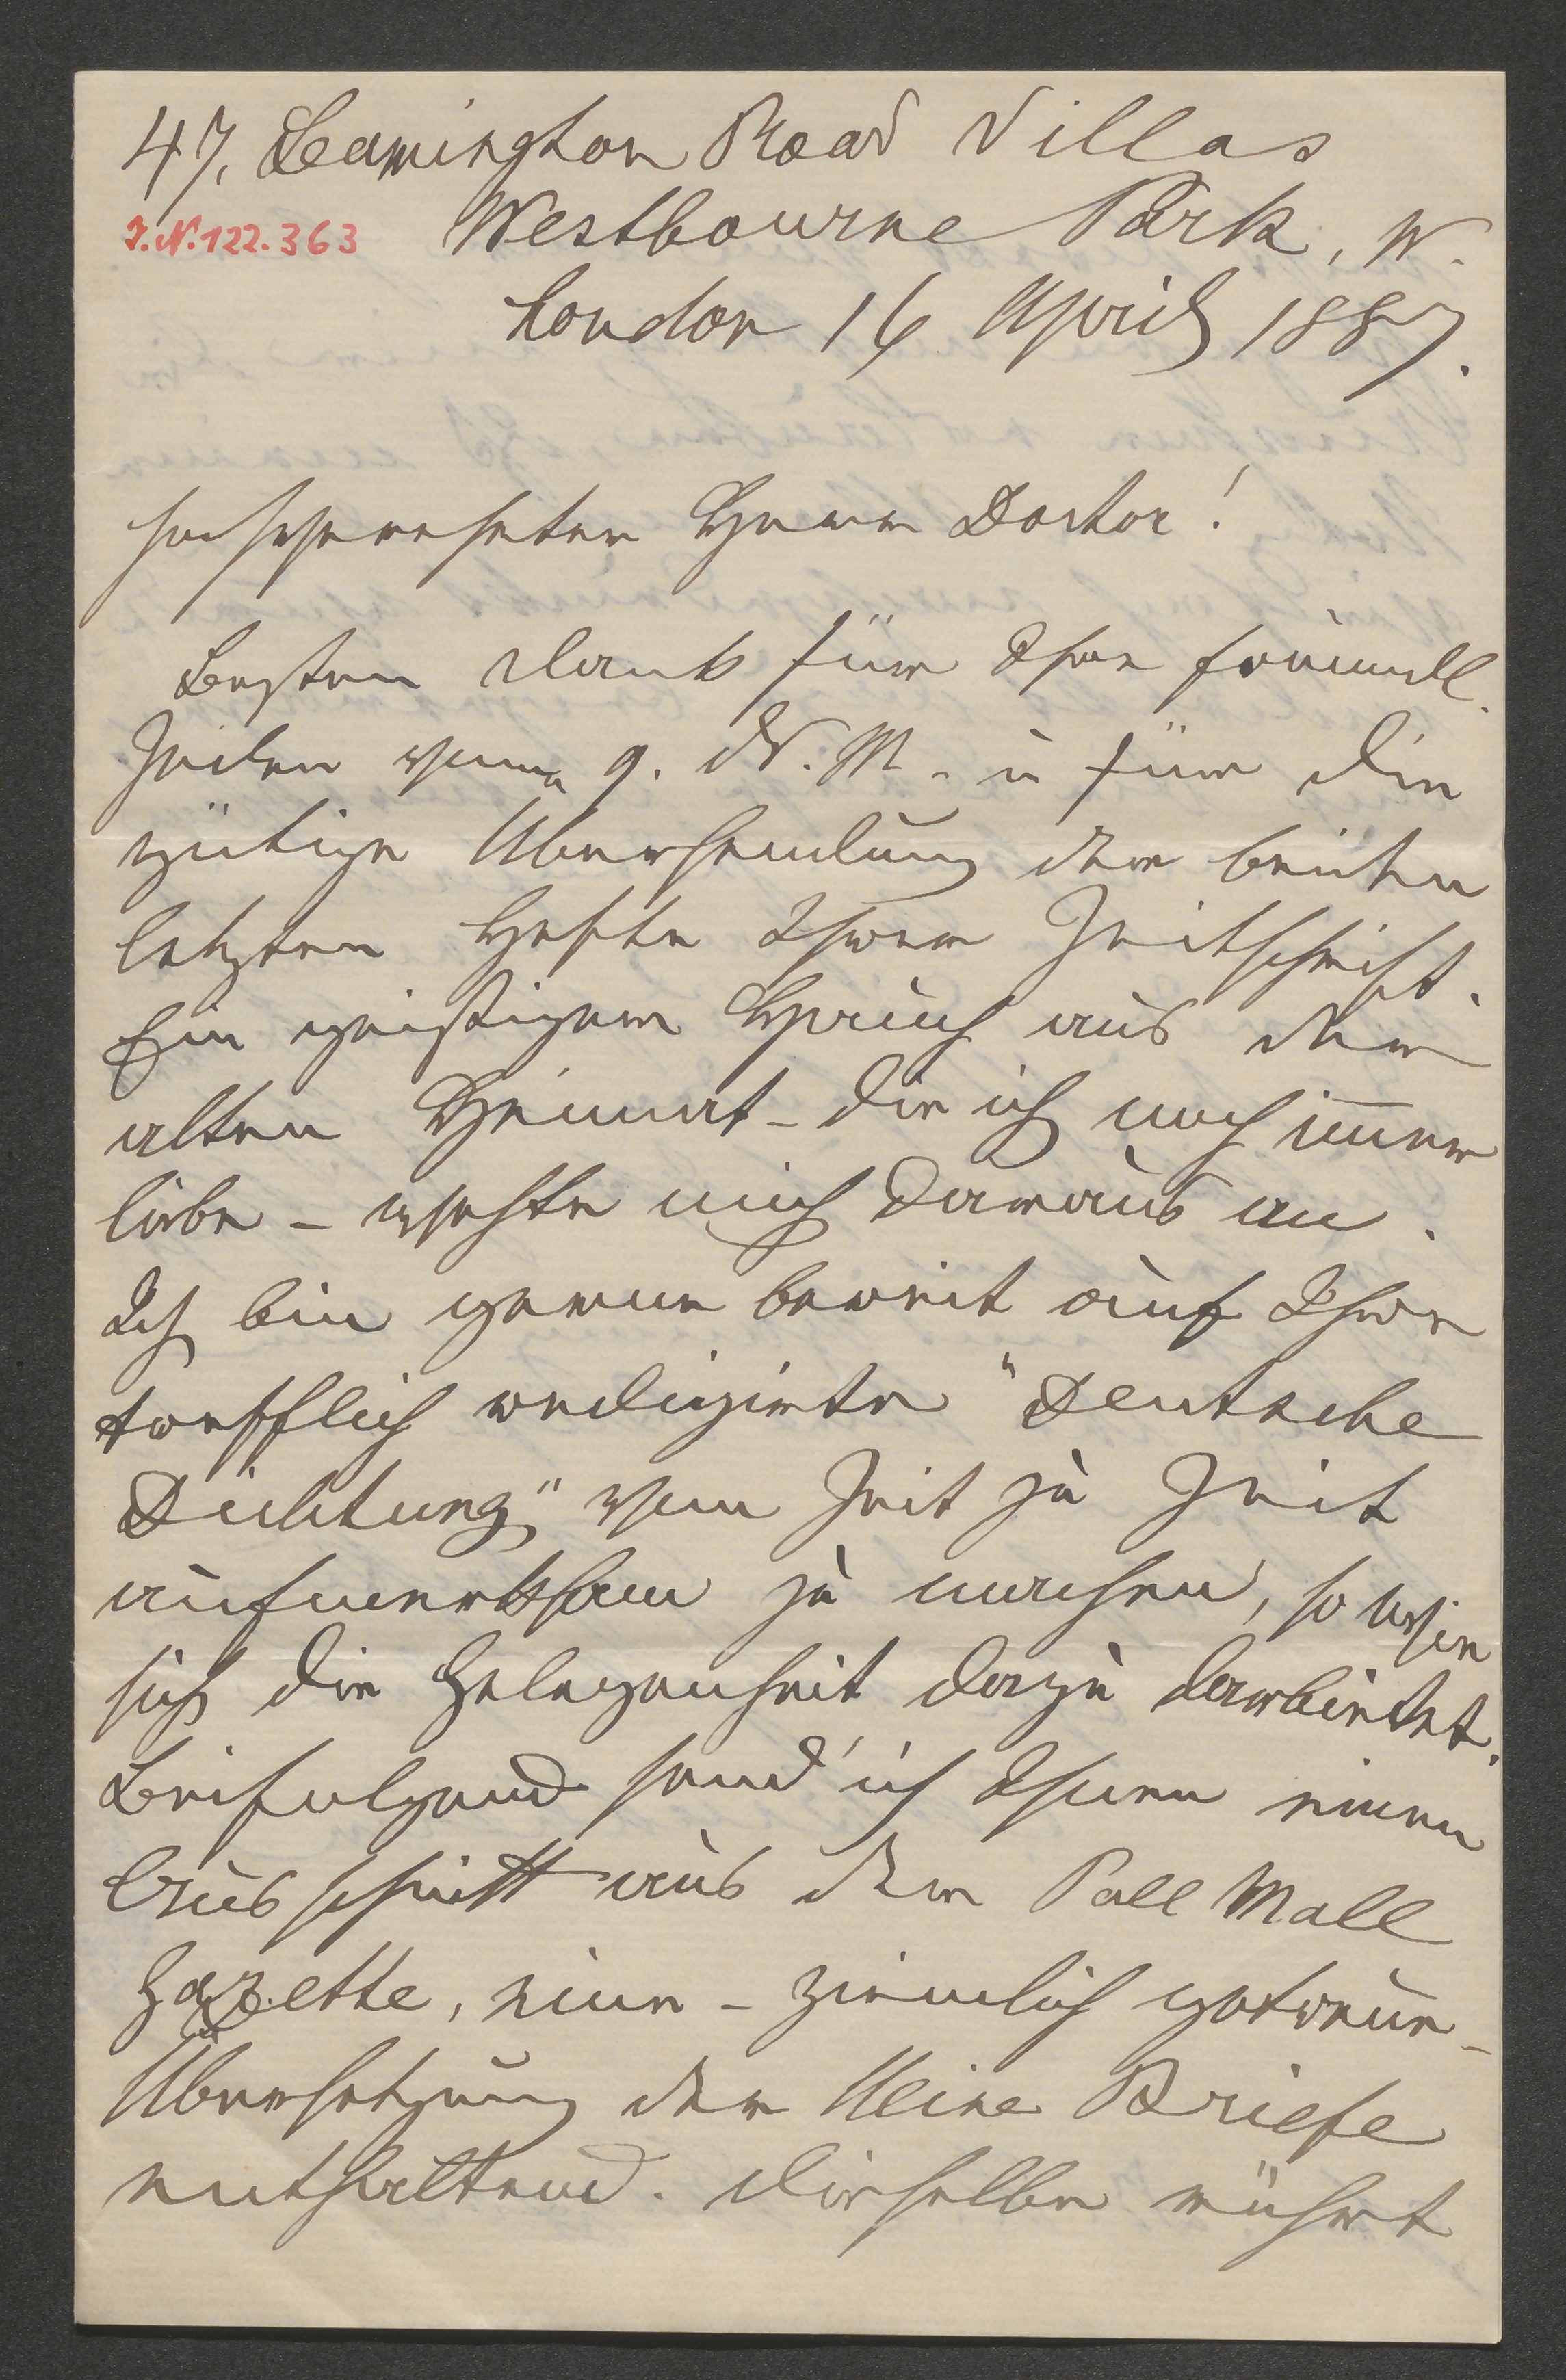 47, Leamington Road Villas
J.N. 122.363 Westbourne Park, W.
London 16 April 1887.
Hochverehrter Herr Doctor!
Besten Dank für Ihre freundl.
Zeilen vom 9. d. M. u für die
gütige Übersendung der beiden
letzten Hefte Ihrer Zeitschrift.
Ein geistiger Hauch aus der
alten Heimat – die ich noch im̅er
liebe – wehte mich daraus an.
Ich bin gerne bereit auf Ihre
trefflich redigirte "Deutsche
Dichtung" von Zeit zu Zeit
aufmerksam zu machen, so wie
sich die Gelegenheit dazu darbietet.
Beifolgend send' ich Ihnen einen
Ausschnitt aus der Pall Mall
Gazette, eine – ziemlich getreue –
Übersetzung der Heine Briefe
enthaltend. Dieselbe rührt